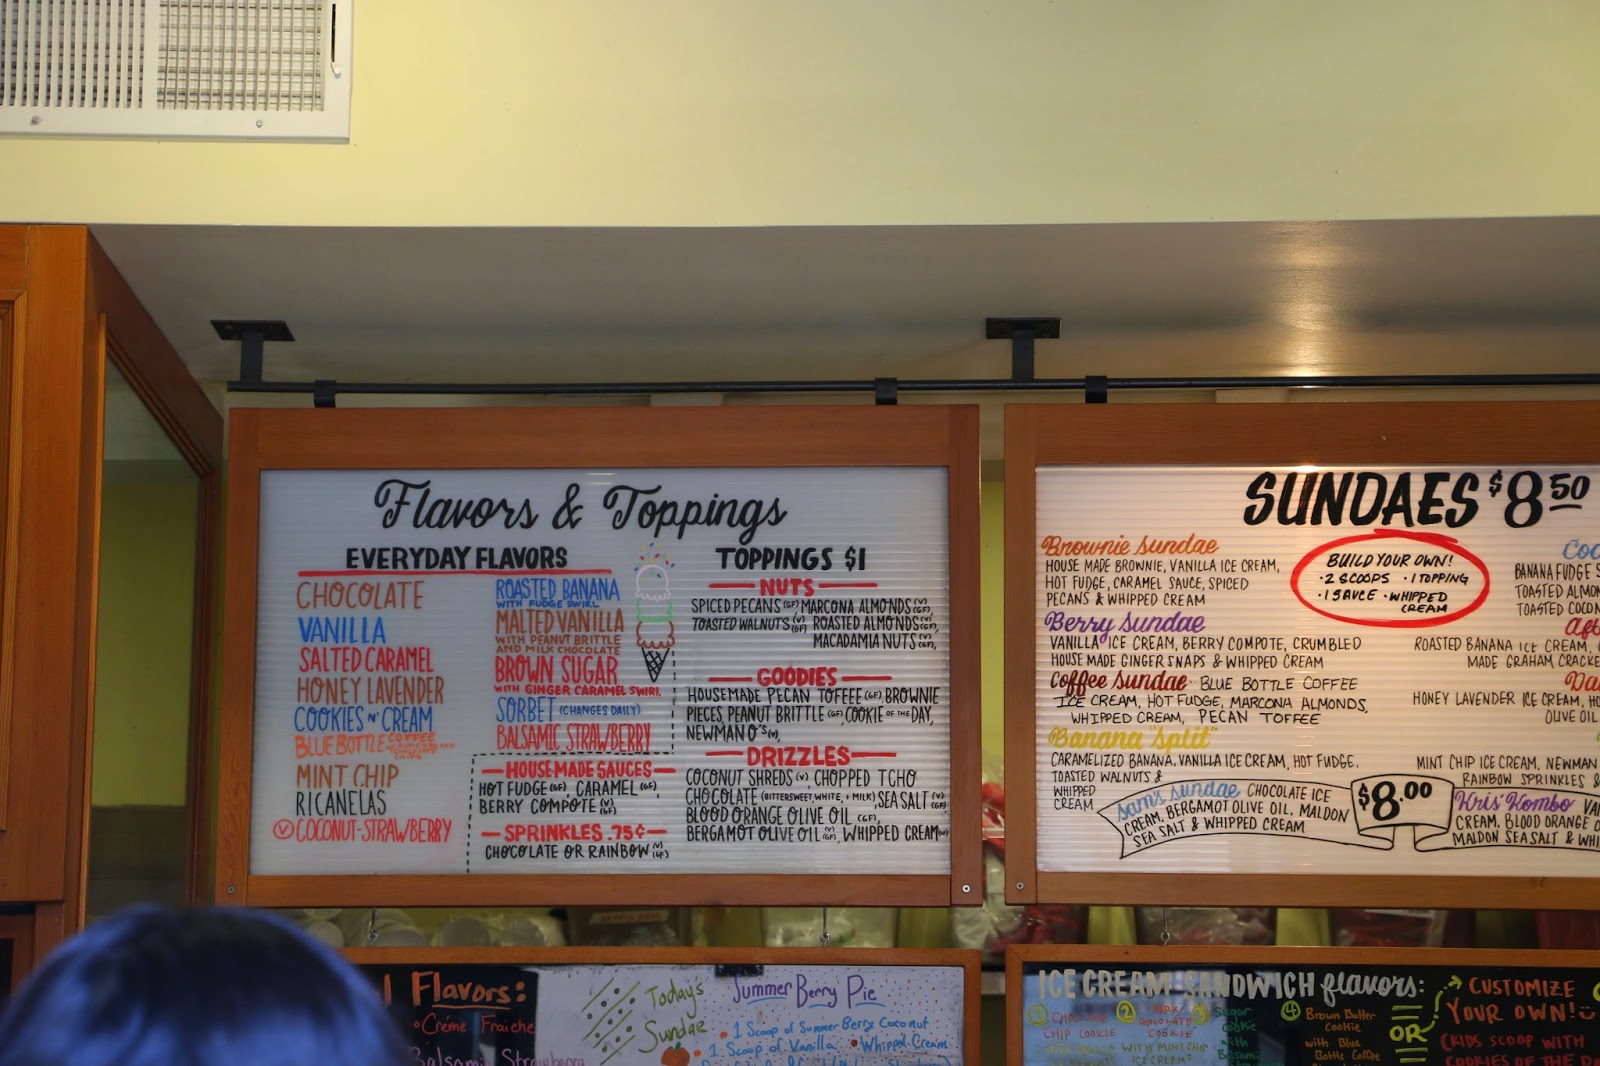 Flavors & Toppings
EVERYDAY FLAVORS
CHOCOLATE
VANILLA
SALTED CARAMEL
HONEY LAVENDER
COOKIES N' CREAM
BLUE BOTTLE COFFEE
MINT CHIP
RICANELAS
Ⓥ COCONUT-STRAWBERRY
ROASTED BANANA
WITH FUDGE SWIRL
MALTED VANILLA
WITH PEANUT BRITTLE
AND MILK CHOCOLATE
BROWN SUGAR
WITH GINGER CARAMEL SWIRL
SORBET (CHANGES DAILY)
BALSAMIC STRAWBERRY
HOUSEMADE SAUCES
HOT FUDGE (GF), CARAMEL (GF)
BERRY COMPOTE (V) (GF)
SPRINKLES .75¢
CHOCOLATE OR RAINBOW (V) (GF)
TOPPINGS $1
NUTS
SPICED PECANS (GF) MARCONA ALMONDS (V) (GF),
TOASTED WALNUTS (V) (GF) ROASTED ALMONDS (V) (GF),
MACADAMIA NUTS (V) (GF),
GOODIES
HOUSEMADE PECAN TOFFEE (GF), BROWNIE
PIECES, PEANUT BRITTLE (GF), COOKIE OF THE DAY,
NEWMAN O'S (V),
DRIZZLES
COCONUT SHREDS (V), CHOPPED TCHO
CHOCOLATE (BITTERSWEET, WHITE, + MILK), SEA SALT (V) (GF)
BLOOD ORANGE OLIVE OIL (GF),
BERGAMOT OLIVE OIL (V) (GF), WHIPPED CREAM
SUNDAES $8.50
Brownie sundae
HOUSE MADE BROWNIE, VANILLA ICE CREAM,
HOT FUDGE, CARAMEL SAUCE, SPICED
PECANS & WHIPPED CREAM
Berry sundae
VANILLA ICE CREAM, BERRY COMPOTE, CRUMBLED
HOUSE MADE GINGER SNAPS & WHIPPED CREAM
Coffee sundae BLUE BOTTLE COFFEE
ICE CREAM, HOT FUDGE, MARCONA ALMONDS,
WHIPPED CREAM, PECAN TOFFEE
Banana "split"
CARAMELIZED BANANA, VANILLA ICE CREAM, HOT FUDGE,
TOASTED WALNUTS &
WHIPPED
CREAM
Sam's sundae CHOCOLATE ICE
CREAM, BERGAMOT OLIVE OIL, MALDON
SEA SALT & WHIPPED CREAM
$8.00
BUILD YOUR OWN!
· 2 SCOOPS · 1 TOPPING
· 1 SAUCE · WHIPPED
CREAM
BANANA FUDGE
TOASTED
TOASTED
ROASTED BANANA ICE CREAM,
MADE GRAHAM
HONEY LAVENDER ICE CREAM,
OLIVE OIL
MINT CHIP ICE CREAM, NEWMAN
RAINBOW SPRINKLES &
Kris' Kombo
CREAM, BLOOD ORANGE
MALDON SEA SALT &
Flavors:
· Créme Fraiche
Balsamic Strawberry
Today's
Sundae
Summer Berry Pie
· 1 Scoop of Summer Berry Coconut
· 1 Scoop of Vanilla · Whipped Cream
ICE CREAM SANDWICH flavors:
① CHOCOLATE
CHIP COOKIE
② DARK
CHOCOLATE
COOKIE
WITH MINT CHIP
ICE CREAM
③ Sugar
Cookie
with
Balsamic
④ Brown Butter
Cookie
with Blue
Bottle Coffee
OR
CUSTOMIZE
YOUR OWN!
SCOOP WITH
COOKIES OF THE